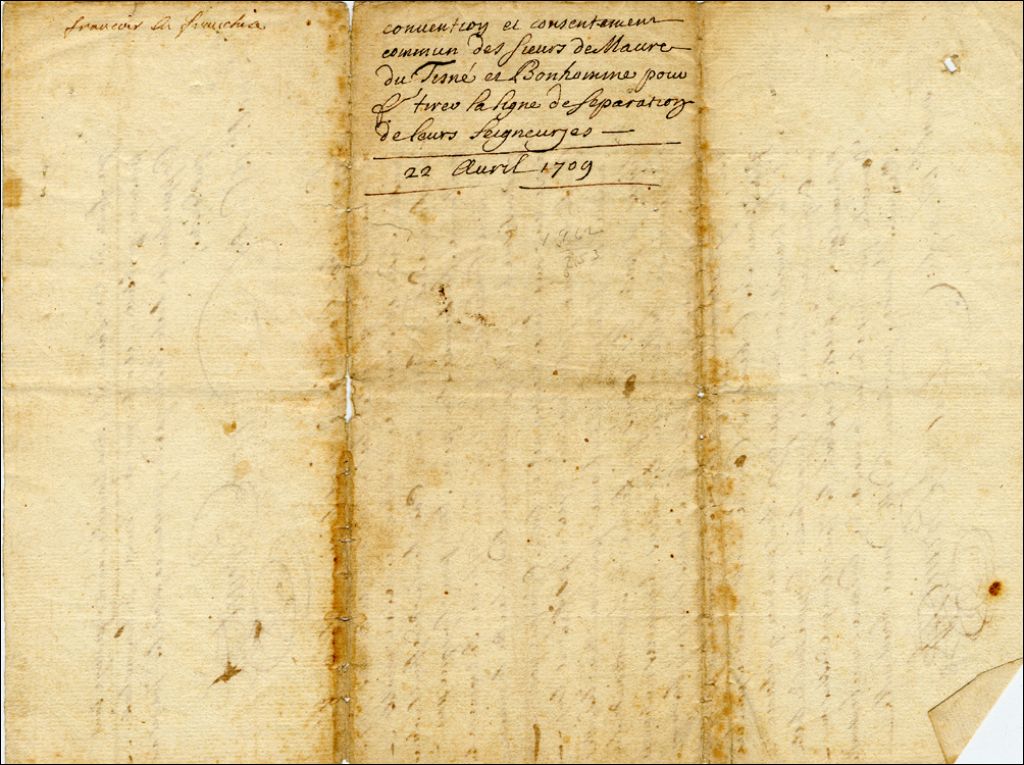 convention et consentement
commun des sieurs de Maure
du Tisné et Bonhomme pour
tirer la ligne de separation
de leurs seigneuries
22 Avril 1709